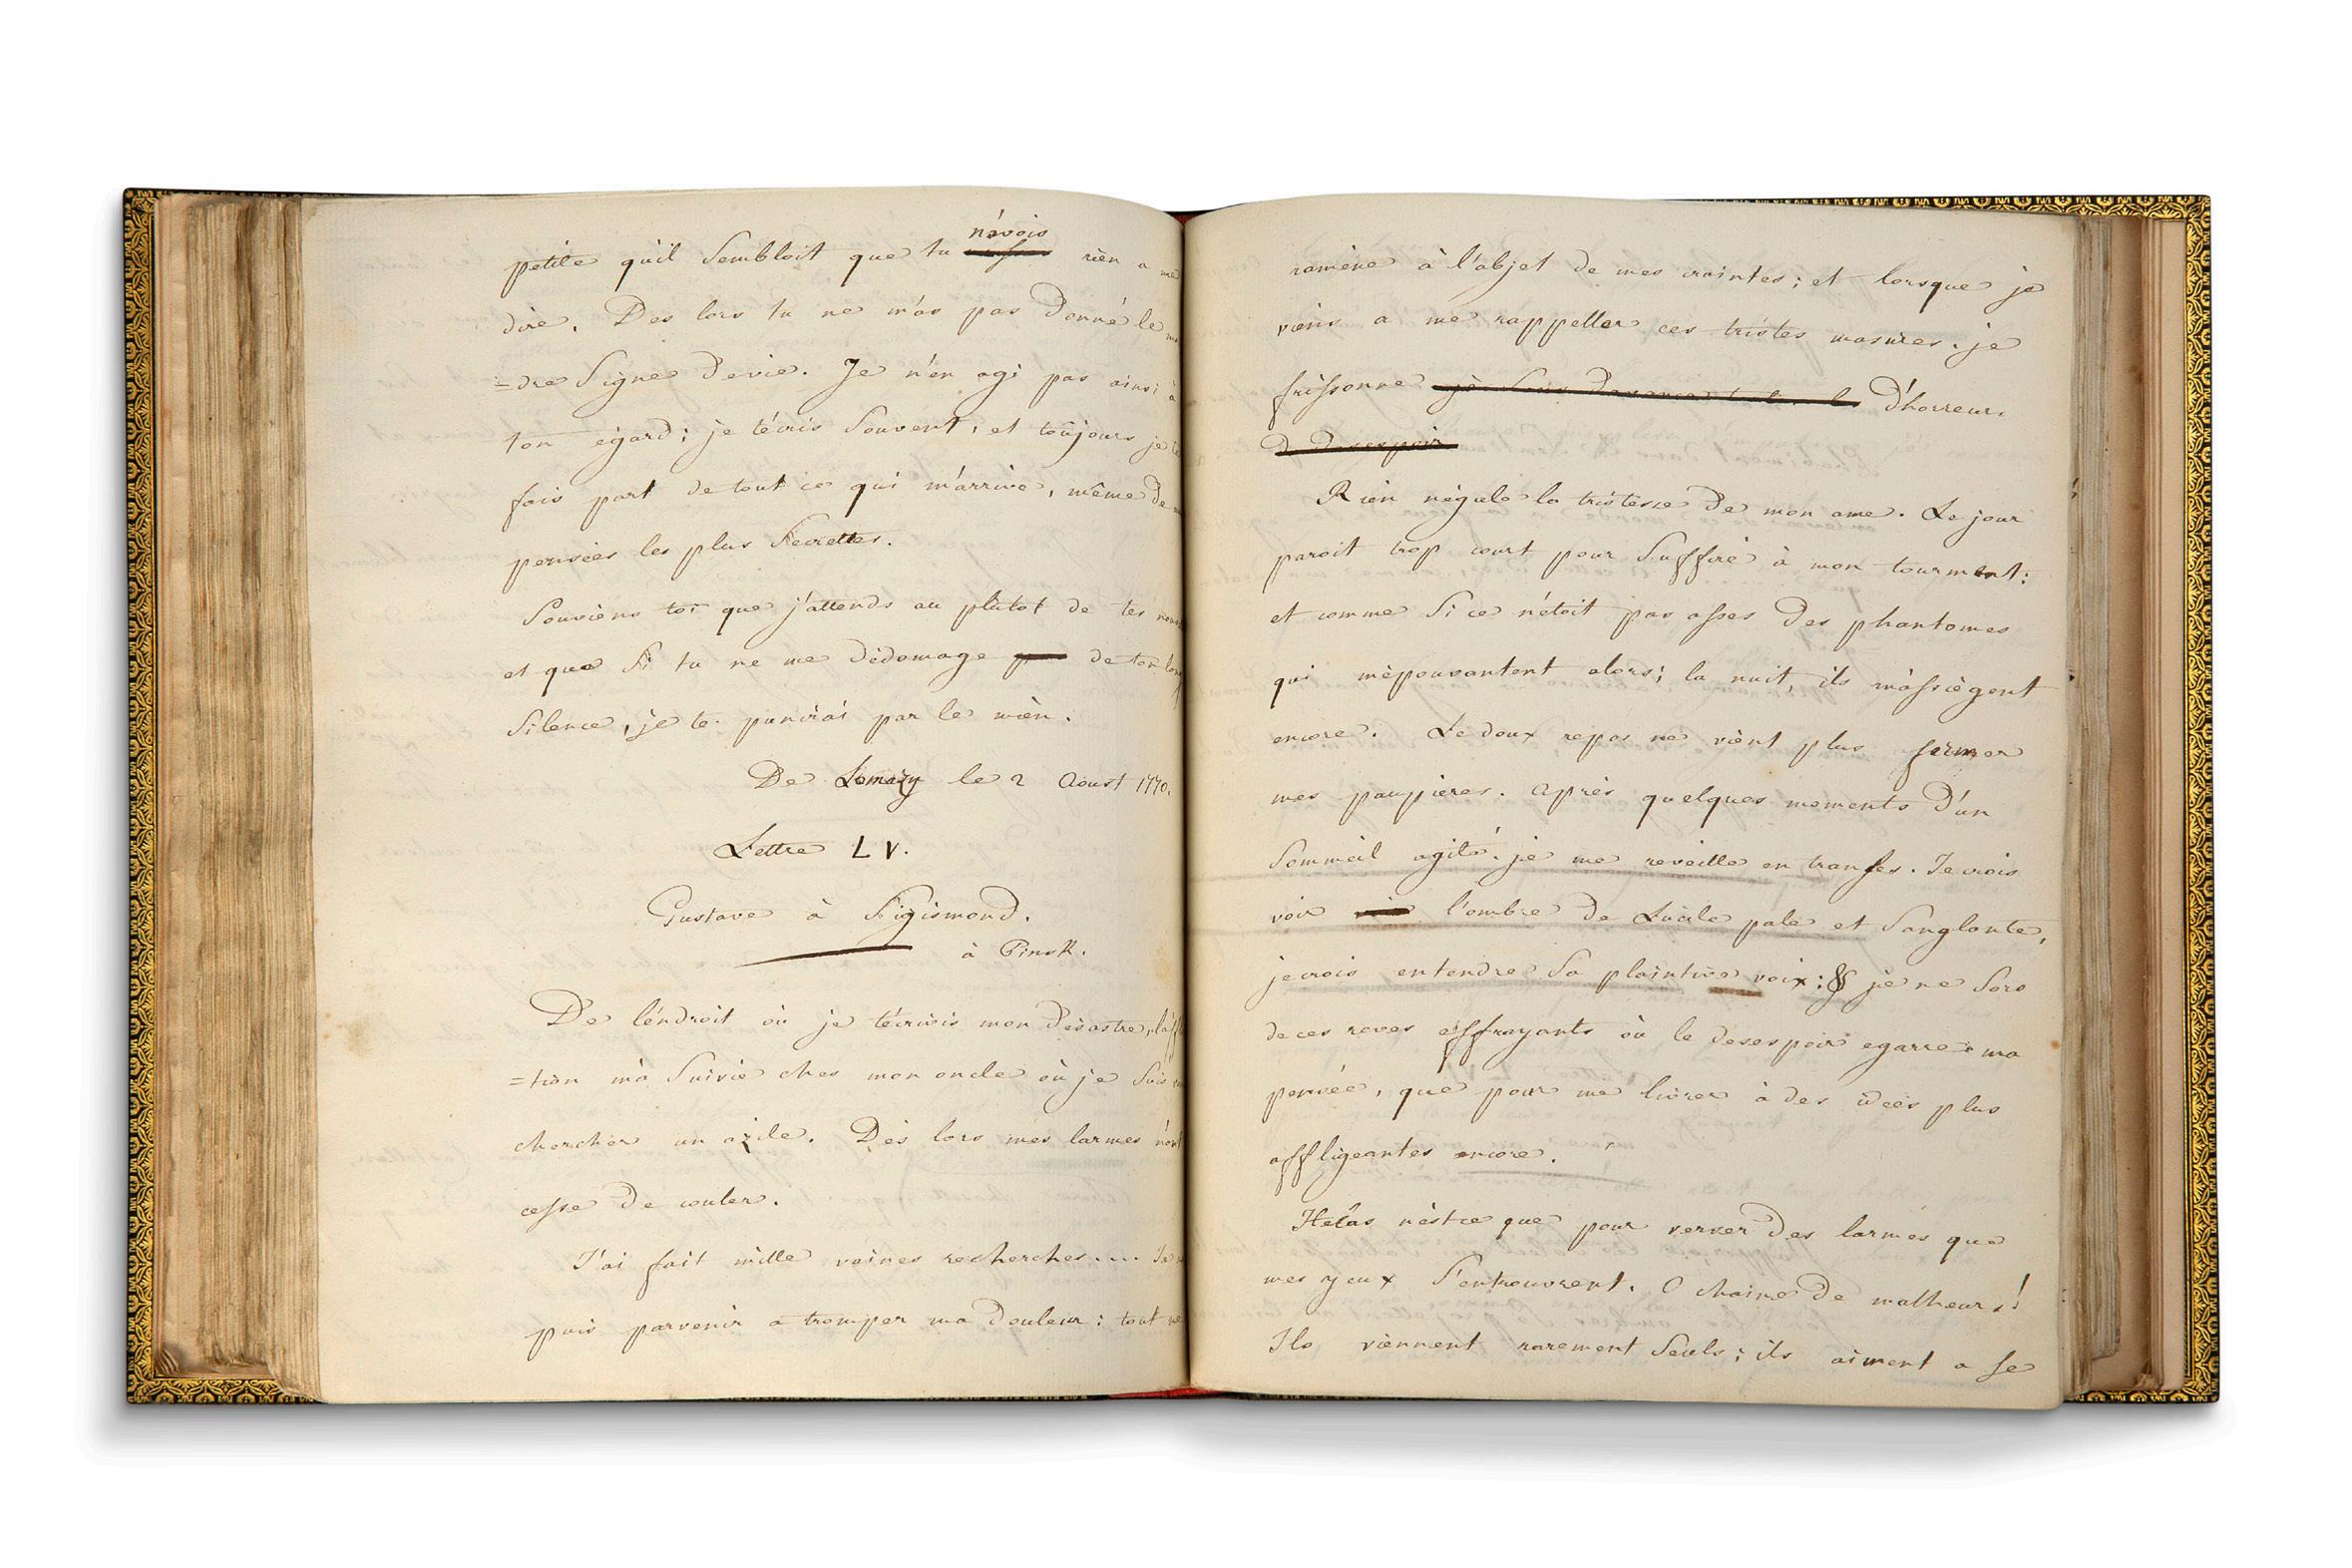 n'avois
petite qu'il Sembloit que tu rièn a me
dire. Des lors tu ne m'as pas Donné le
=dre Signe De vie. Je n'en agi pas ainsi à
ton égard; je t'écris Souvent, et toûjours je te
fais part de tout ce qui m'arrive, même De
pensées les plus Secrettes.
Souvièns toi que j'attends au plutot de tes
et que Si tu ne me dédomage pas de ton long
Silence, je te punirai par le mièn.
De Lomazy le 2 Aoust 1770.
Lettre LV.
Gustave à Sigismond.
à Pinsk.
De l'éndroit où je t'écrivis mon Désastre,
=tiòn m'a Suivie ches mon oncle où je Suis
chercher un azile. Dès lors mes larmes n'ont
cesse De couler.
J'ai fait mille vaines recherches.... Je
puis parvenir a tromper ma Douleur: tout me
ramène à l'objet de mes craintes; et lorsque je
vièns a me rappeller ces tristes masures, je
frissonne D'horreur.
Desespoir
Rièn n'égale la tristesse De mon ame. Le jour
paroit trop court pour Suffire à mon tourment:
et comme Si ce n'étoit pas asses Des phantomes
qui m'épouvantent alors; la nuit, ils m'assiègent
encore. Le doux repos ne vient plus fermer
mes paupieres. Après quelques moments D'un
Sommeil agité, je me reveille en transes. Je crois
voir l'ombre de Lucile pale et Sanglante,
je crois entendre Sa plaintive voix: & je ne Sors
de ces reves effrayants où le desespoir egarre ma
pensée, que pour me livrer à des idées plus
affligeantes encore.
Helâs n'est ce que pour verser Des larmes que
mes yeux S'entrouvrent. O chaine De malheurs!
Ils viennent rarement Seuls; ils aiment a Se